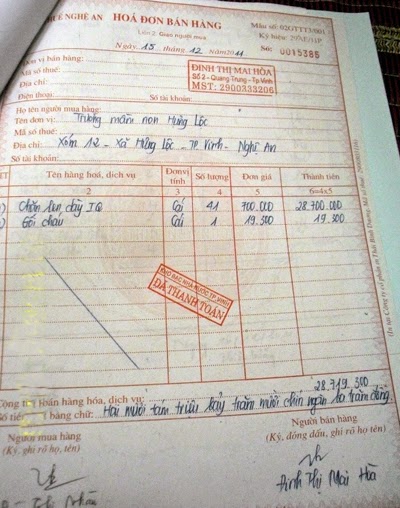 UẾ NGHỆ AN
HOÁ ĐƠN BÁN HÀNG
Mẫu số: 02GTTT3/001
Liên 2: Giao người mua
Ký hiệu:
Ngày 15 tháng 12 năm 2011
Số: 0015385
Đơn vị bán hàng:
Mã số thuế:
Địa chỉ:
Điện thoại:
Số tài khoản:
ĐINH THỊ MAI HÒA
Số 2 - Quang Trung - Tp.Vinh
MST: 2900333206
Họ tên người mua hàng:
Tên đơn vị: Trường mầm non Hưng Lộc
Mã số thuế:
Địa chỉ: Xóm 12 - Xã Hưng Lộc - TP Vinh - Nghệ An
Số tài khoản:
TT Tên hàng hoá, dịch vụ Đơn vị tính Số lượng Đơn giá Thành tiền
2 3 4 5 6=4x5
Chăn len dày IQ Cái 41 700.000 28.700.000
Gối cháu Cái 1 19.300 19.300
KHO BẠC NHÀ NƯỚC TP.VINH
ĐÃ THANH TOÁN
28.719.300
Cộng tiền bán hàng hóa, dịch vụ:
Số tiền hàng chữ: Hai mươi tám triệu bảy trăm mười chín ngàn ba trăm đồng.
Người mua hàng
Người bán hàng
(Ký, ghi rõ họ tên)
(Ký, đóng dấu, ghi rõ họ tên)
Đinh Thị Mai Hòa